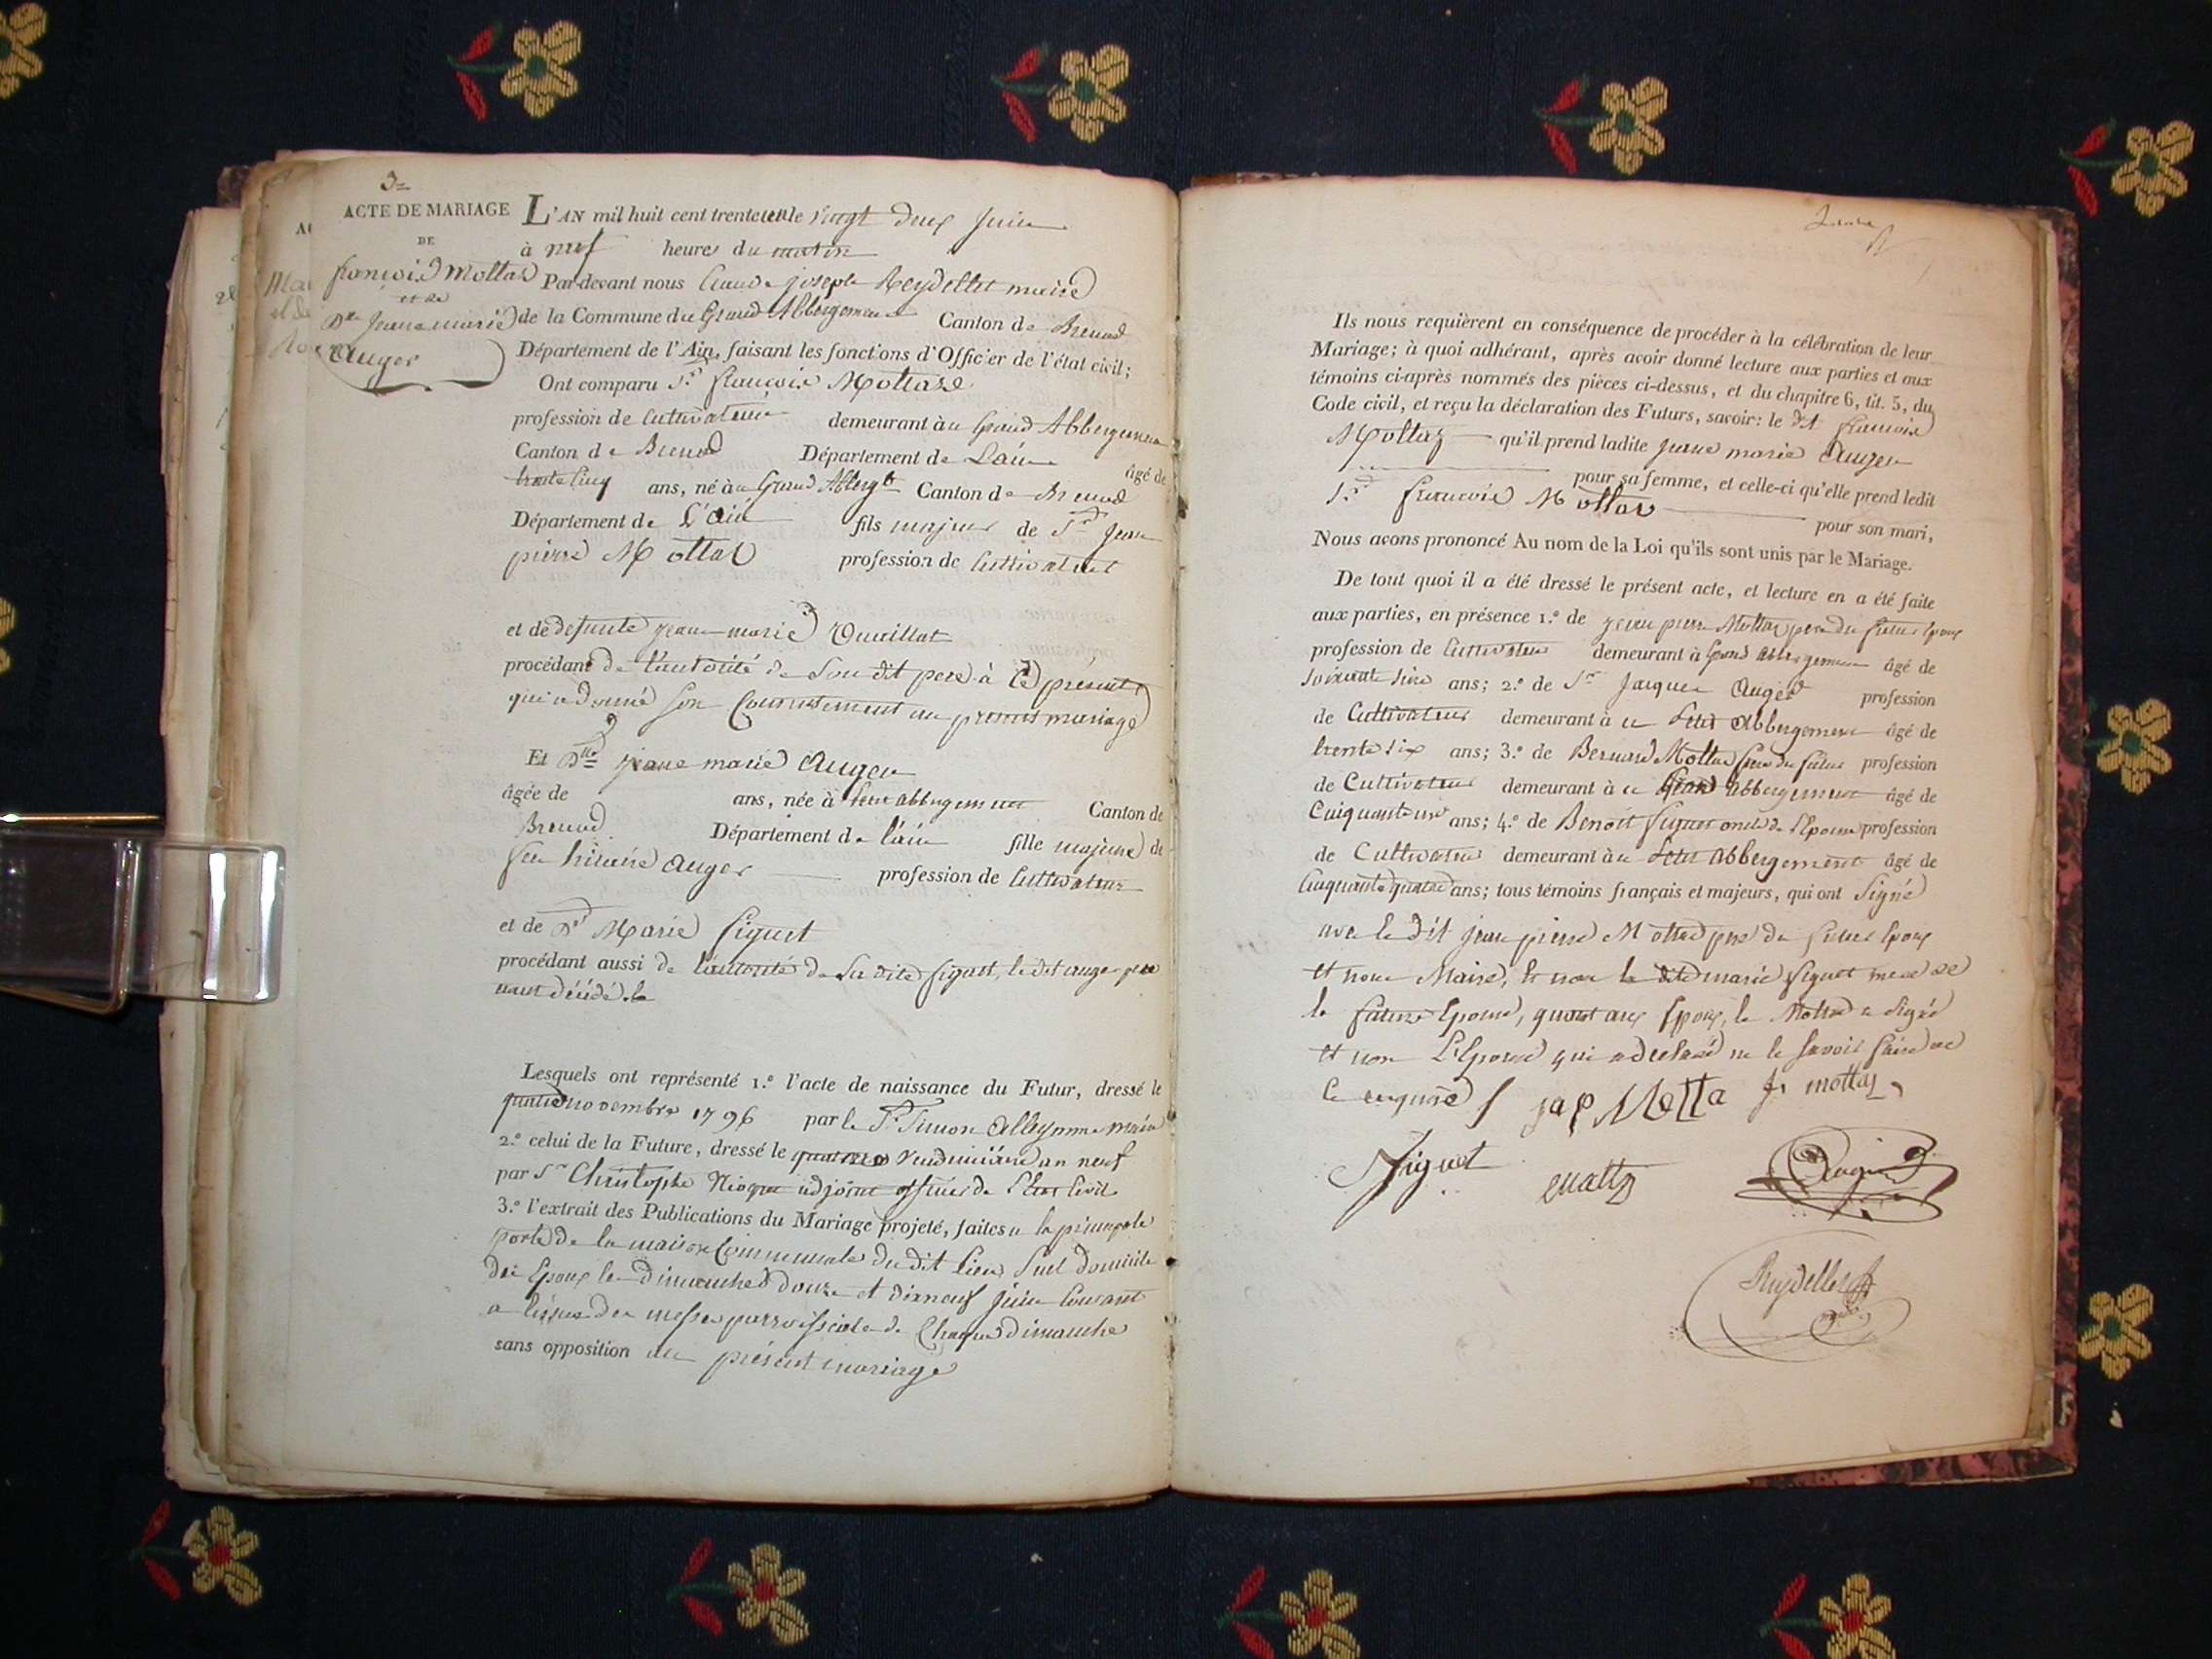 3e
ACTE DE MARIAGE
DE
françois Mottaz
et de
Dlle Jeanne marie
Auger
L'AN mil huit cent trente un le vingt deux Juin
à neuf heures du matin
Par-devant nous Claude joseph Reydellet maire
de la Commune du Grand Abbergement Canton de Brenod
Département de l'Ain, faisant les fonctions d'Officier de l'état civil;
Ont comparu Sr françois Mottaz
profession de Cultivateur demeurant au Grand Abbergement
Canton de Brenod Département de L'ain âgé de
trente cinq ans, né au Grand Abbergt Canton de Brenod
Département de L'ain fils majeur de Sr Jean
pierre Mottaz profession de Cultivateur
et de defunte jeanne marie
procédant de l'autorité de Son dit pere à Ce présent,
qui a donné Son Consentement au présent mariage
Et Dlle jeanne marie Auger
âgée de ans, née à Petit abbergement Canton de
Brenod Département de l'ain fille majeure de
feu hilaire Auger profession de Cultivateur
et de De Marie Figuet
procédant aussi de l'autorité de La dite figuet, le dit auger pere
étant décédé
Lesquels ont représenté 1.º l'acte de naissance du Futur, dressé le
novembre 1796 par le Sr Simon maire
2.º celui de la Future, dressé le vendémiaire an neuf
par Sr Christophe adjoint officier de L'état Civil
3.º l'extrait des Publications du Mariage projeté, faites a la principale
porte de la maison Communale du dit Lieu Seul domicile
des Epoux les dimanches douze et dixneuf Juin Courant
a l'issue des messes parroissiale de Chaque dimanche
sans opposition au présent mariage
Ils nous requièrent en conséquence de procéder à la célébration de leur
Mariage; à quoi adhérant, après avoir donné lecture aux parties et aux
témoins ci-après nommés des pièces ci-dessus, et du chapitre 6, tit. 5, du
Code civil, et reçu la déclaration des Futurs, savoir: le dit françois
Mottaz qu'il prend ladite jeanne marie Auger
pour sa femme, et celle-ci qu'elle prend ledit
Sr françois Mottaz pour son mari,
Nous avons prononcé Au nom de la Loi qu'ils sont unis par le Mariage.
De tout quoi il a été dressé le présent acte, et lecture en a été faite
aux parties, en présence 1.º de jean pierre Mottaz pere du futur Epoux
profession de Cultivateur demeurant à Grand abbergement âgé de
soixante ans; 2.º de Sr Jacques Auger profession
de Cultivateur demeurant à ce Petit Abbergement âgé de
trente six ans; 3.º de Bernard Mottaz frere du futur profession
de Cultivateur demeurant à ce Grand abbergement âgé de
ans; 4.º de Benoit figuet oncle de L'Epouse profession
de Cultivateur demeurant au Petit Abbergement âgé de
Cinquante quatre ans; tous témoins français et majeurs, qui ont Signé
avec le dit jean pierre Mottaz pere du futur Epoux
et nous Maire, et non la dite marie figuet mere de
la future Epouse, quant aux Epoux, le Mottaz a Signé
et non L'Epouse qui a déclaré ne le Savoir faire de
ce enquise / jap Motta fr mottaz
figuet Mottaz Auger
Reydellet